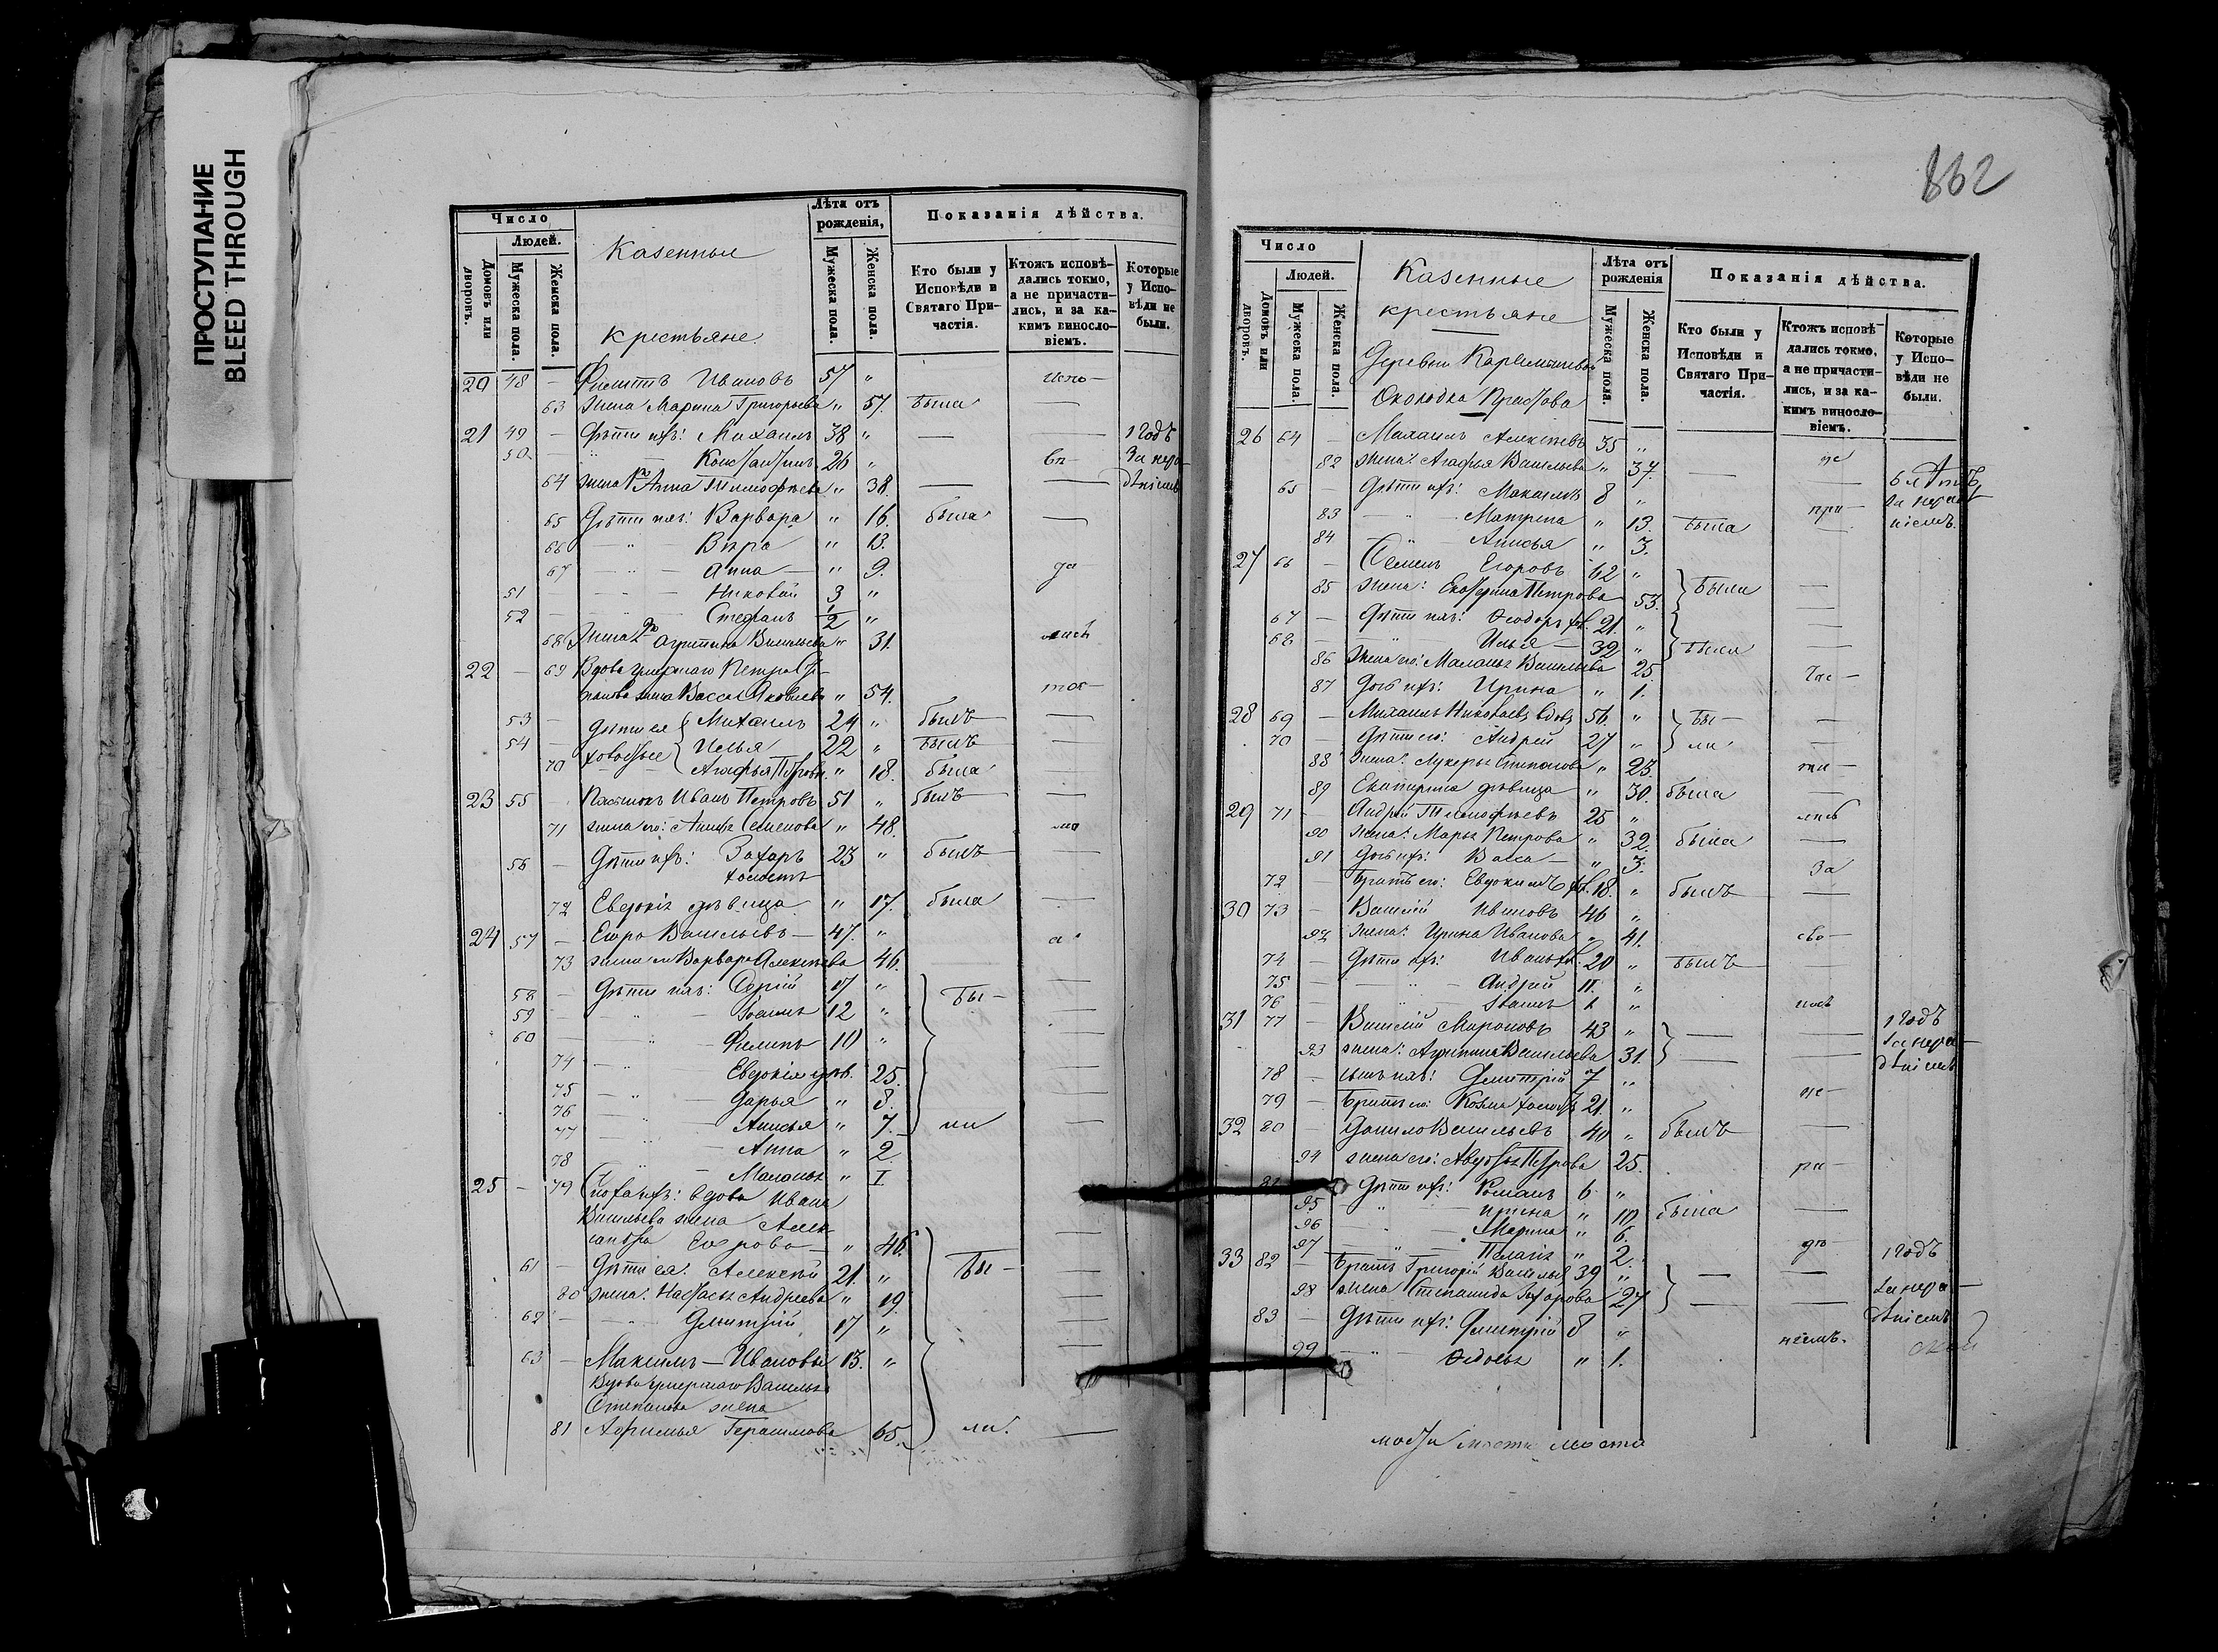 ПРОСТУПАНИЕ
BLEED THROUGH
862
Число
Людей.
Домовъ или дворовъ.
Мужеска пола.
Женска пола.
Казенные
крестьяне.
Лѣта отъ рожденія,
Мужеска пола.
Женска пола.
Показанія дѣйства.
Кто были у Исповѣди и Святаго Причастія.
Ктожъ исповѣдались токмо, а не причастились, и за какимъ винословіемъ.
Которые у Исповѣди не были.
20 48 — Филиппъ Ивановъ 57 " испо—
63 жена Марина Григорьева " 57. была —
21 49 — Дѣти ихъ: Михаилъ 38 " — — 1 годъ
50 — " — Констант/инъ 26 " вѣ— За нера—
64 жена 1й Анна Тимофѣева " 38. — — дѣніемъ
65 Дѣти ихъ: Варвара " 16. была —
66 — " — Вѣра " 13.
67 — " — Анна — " 9. да
51 — — " — Николай 3 "
52 — — " — Стефанъ 1/2 "
68 Жена 2го Агрипина Васильева " 31. лись
22 — 69 Вдова умершаго Петра
жена Васса Яковлева " 54. ток—
53 — дѣти ея Михаилъ 24 " былъ —
54 — холостые Илья 22 " былъ —
70 Агафья Петрова " 18. была —
23 55 — Иванъ Петровъ 51 " былъ —
71 жена его: Анна Семенова " 48. мо
56 — Дѣти ихъ: Захаръ 23 " былъ —
холостъ
72 Евдокія дѣвица " 17. была —
24 57 — Егоръ Васильевъ — 47. " а
73 жена его Варвара Алексѣева 46.
58 — Дѣти ихъ: Сергій 17 " бы— —
59 — — " — Іоаннъ 12 " —
60 — — " — Филипъ 10 " —
74 — " — Евдокія дѣв. 25. —
75 — " — Дарья " 8. —
76 — " — Анисья " 7. ли —
77 — " — Анна " 2
78 — " — Маланья " 1
25 — 79 Сноха ихъ: вдова Ивана
Васильева жена Алек-
сандра Егорова — " 46. —
61 — Дѣти ея: Алексѣй 21. " бы— —
80 жена: Настасья Андреева " 19. —
62 — — " — Дмитрій 17 " —
63 — Максимъ — Ивановы 13. " —
Вдова умершаго Василья
Степанова жена
81 Афимья Герасимова 65. ли. —
Число
Людей.
Домовъ или дворовъ.
Мужеска пола.
Женска пола.
Казенные
крестьяне
Деревни
Околодка
Лѣта отъ рожденія
Мужеска пола.
Женска пола.
Показанія дѣйства.
Кто были у Исповѣди и Святаго Причастія.
Ктожъ исповѣдались токмо, а не причастились, и за какимъ винословіемъ.
Которые у Исповѣди не были.
26 64 — Алексѣевъ 35 "
82 жена: Агафья Васильева " 37. — не
65 — Дѣти ихъ: Максимъ 8 " — 6 лѣтъ
83 — " — Матрена " 13. была при— За нера
84 — " — Анисья " 3. — ніемъ
27 66 — Семенъ Егоровъ 62 " были —
85 жена: Екатерина Петрова 53. —
67 — Дѣти ихъ: Ѳеодоръ хол. 21. " —
68 — — " — Илья — 32 " были —
86 жена его: Маланья Васильева 25.
87 Дочь ихъ: Ирина " 1. час—
28 69 — Михаилъ Николаевъ вдовъ 56. " бы— —
70 — Дѣти его: Андрей 27 " ли —
88 жена: Лукерья Степанова " 23. ти—
89 Екатерина дѣвица " 30. была —
29 71 — Андрей Тимофѣевъ 25 " лись
90 жена: Марья Петрова " 32. была —
91 Дочь ихъ: Васса — " 3. За
72 — Братъ его: Евдокимъ хол. 18. " былъ —
30 73 — Василій Ивановъ 46 "
92 жена: Ирина Ивановна " 41. сво—
74 — Дѣти ихъ: Иванъ хол. 20 " былъ —
75 — — " — Андрей 11. "
76 — — " — 1 " имъ
31 77 — Василій Мироновъ 43 " — — 1 годъ
93 жена: Агрипина Васильева 31. — — За нера—
78 — сынъ ихъ: Дмитрій 7 " дѣніемъ
79 — Братъ его: Козма холостъ 21. " не
32 80 — Данило Васильевъ 40 " былъ —
94 жена его: Авдотья Петрова 25. ра—
81 — Дѣти ихъ: Романъ 6. "
95 — " — Ирина " 10. была —
96 — " — Марина " 6.
97 — " — Пелагія " 2. дѣ—
33 82 — Братъ Григорій Васильевъ 39 " — — 1 годъ
98 жена Степанида Захарова 27 — — За нера—
83 — Дѣти ихъ: Дмитрій 8 " дѣніемъ
99 — " — Ѳедосья " 1. ніемъ.